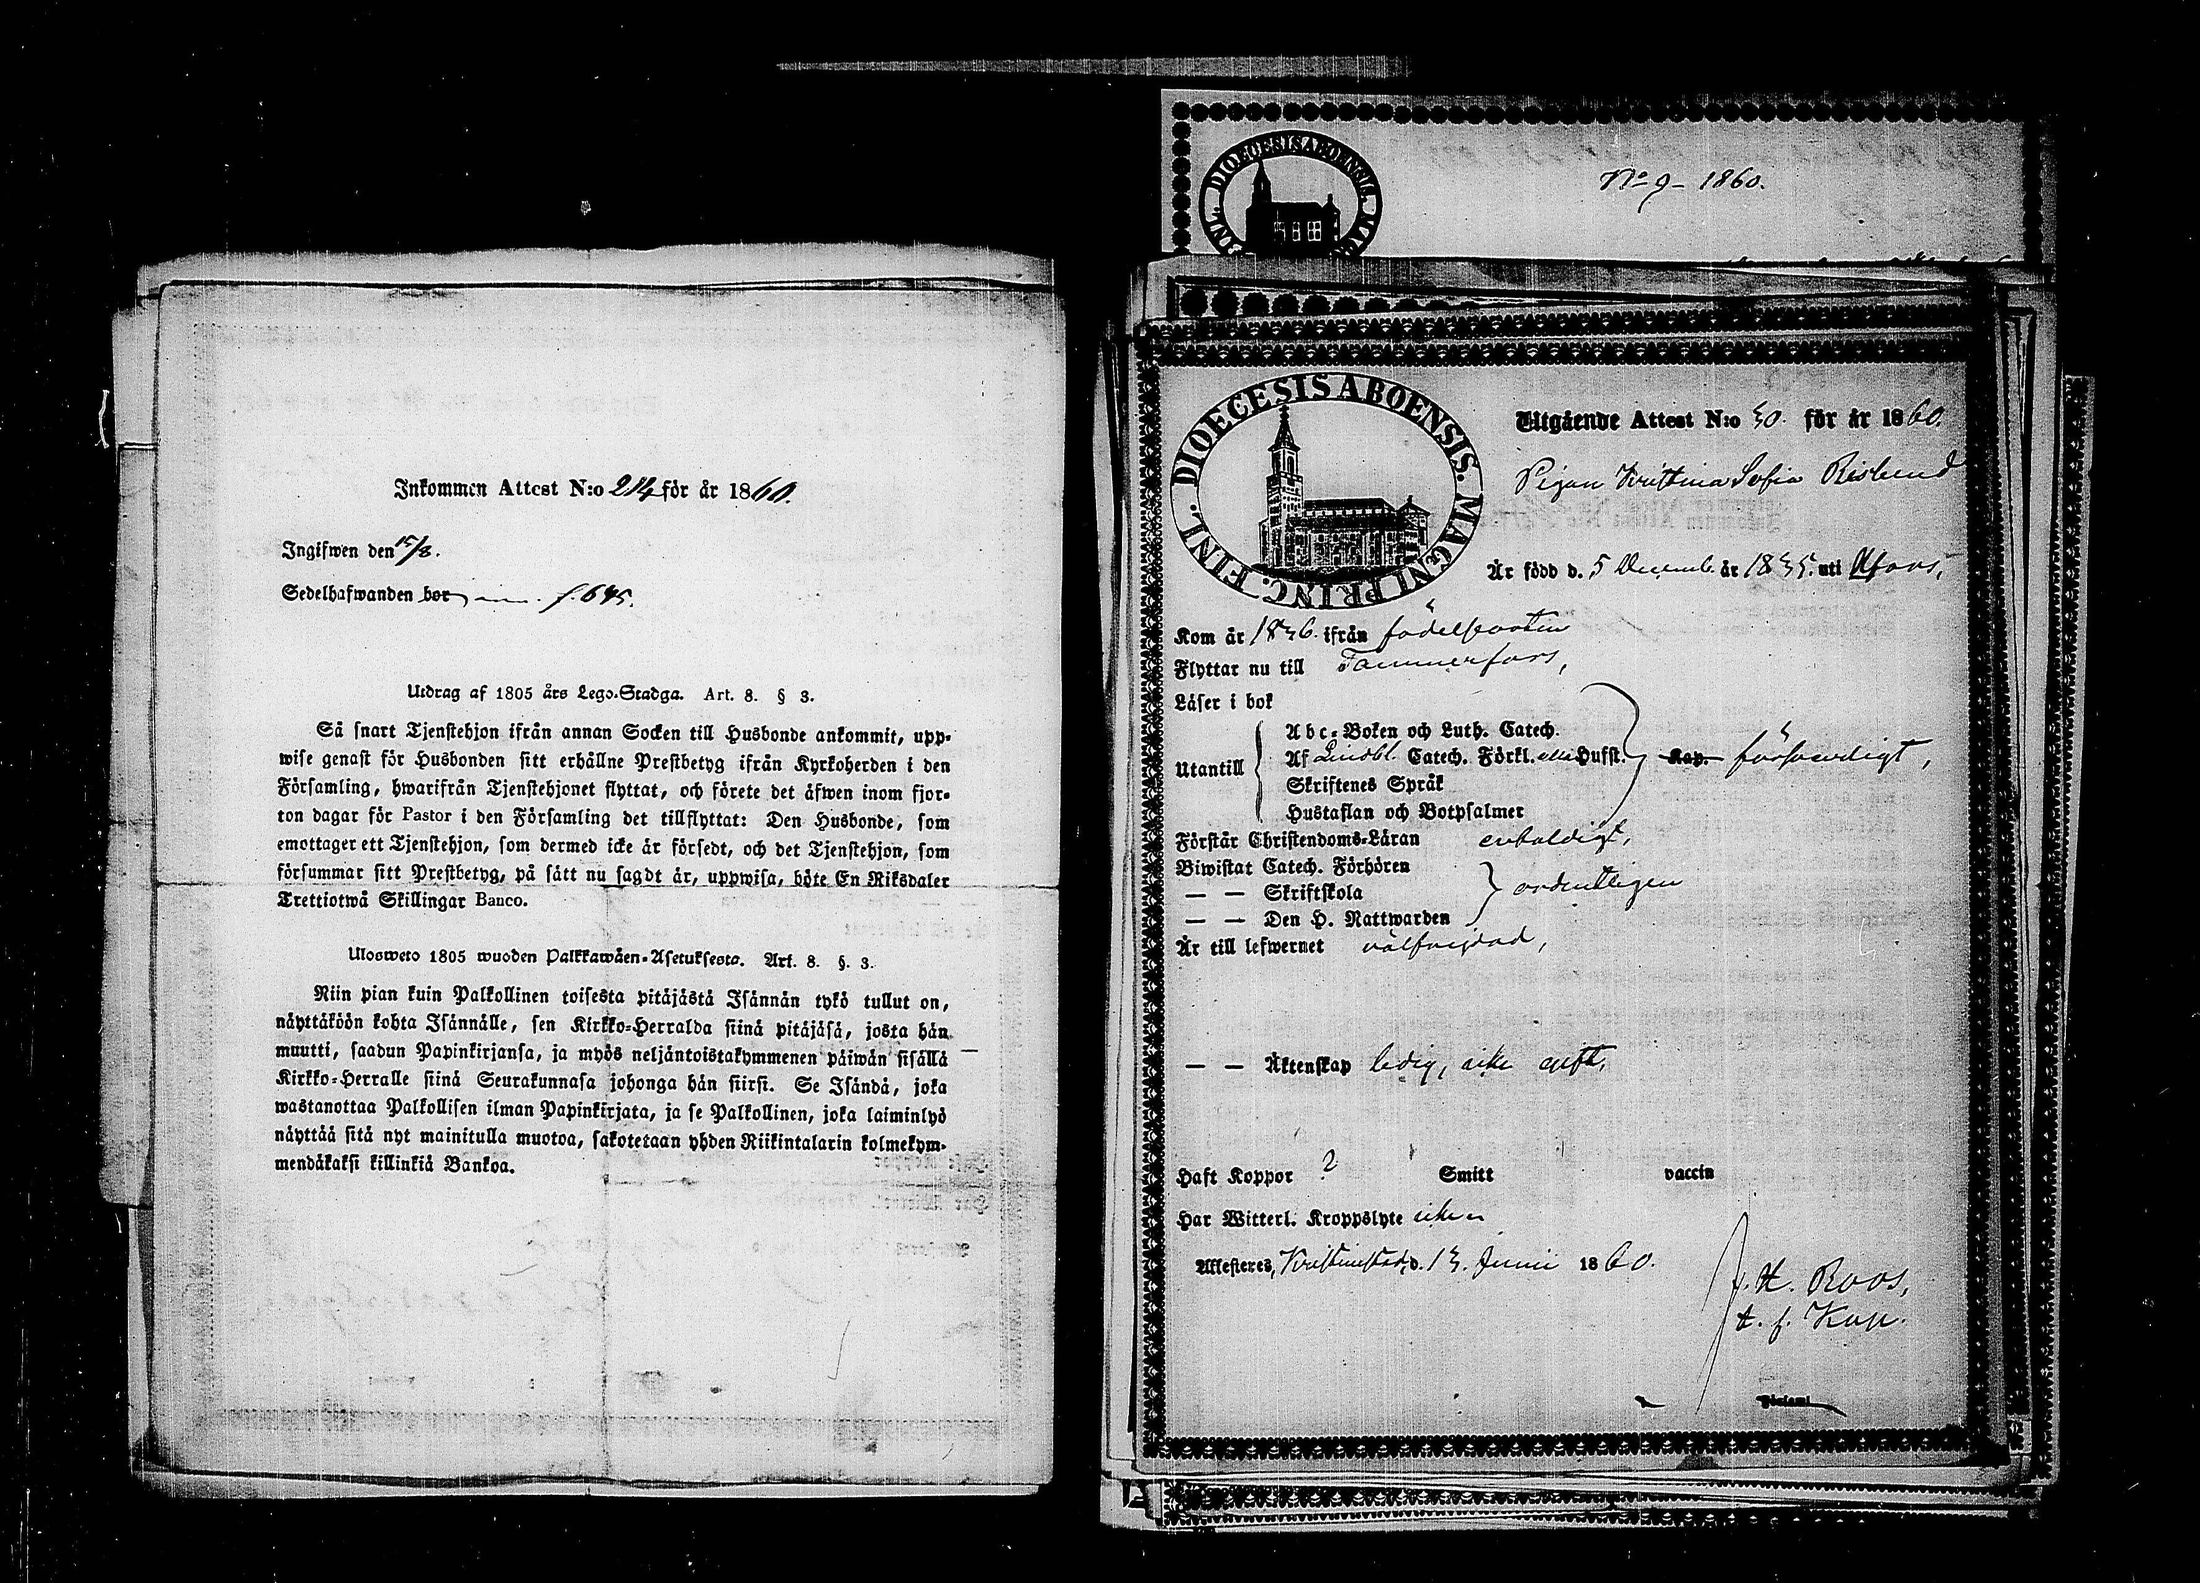 Inkommen Attest N:o 214 för år 1860.
Ingifwen den 15/8.
Sedelhafwanden bor f. 645.
Utdrag af 1805 års Lego-Stadga. Art. 8. § 3.
Så snart Tjenstehjon ifrån annan Socken till Husbonde ankommit, upp-
wise genast för Husbonden sitt erhållne Prestbetyg ifrån Kyrkoherden i den
Församling, hwarifrån Tjenstehjonet flyttat, och förete det äfwen inom fjor-
ton dagar för Pastor i den Församling det tillflyttat: Den Husbonde, som
emottager ett Tjenstehjon, som dermed icke är försedt, och det Tjenstehjon, som
försummar sitt Prestbetyg, på sätt nu sagdt är, uppwisa, böte En Riksdaler
Trettiotwå Skillingar Banco.
Ulosweto 1805 wuoden Palkkawäen-Asetuksesta. Art. 8. §. 3.
Niin pian kuin Palkollinen toisesta pitäjästä Isännän tykö tullut on,
näyttäköön kohta Isännälle, sen Kirkko-Herralda siinä pitäjäsä, josta hän
muutti, saadun Papinkirjansa, ja myös neljäntoistakymmenen päiwän sisällä
Kirkko-Herralle siinä Seurakunnasa johonga hän siirsi. Se Isändä, joka
wastanottaa Palkollisen ilman Papinkirjata, ja se Palkollinen, joka laiminlyö
näyttää sitä nyt mainitulla muotoa, sakotetaan yhden Riikintalarin kolmekym-
mendäkaksi killinkiä Bankoa.
DIOECESIS ABOENSIS. MAGNI
No 9 - 1860.
DIOECESIS ABOENSIS. MAGNI PRINC. FINL.
Utgående Attest N:o 30. för år 1860.
Pigan Kristina Sofia
Är född d. 5 Decemb. år 1835. uti
Kom år 1836. ifrån födelseorten
Flyttar nu till Tammerfors,
Läser i bok
Abc-Boken och Luth. Catech.
Utantill Af Lindbl. Catech. Förkl. Husst. Kap. försvarligt,
Skriftenes Språk
Hustaflan och Botpsalmer
Förstår Christendoms-Läran enfaldigt,
Biwistat Catech. Förhören
— — Skriftskola ordentligen
— — Den H. Nattwarden
Är till lefwernet välfrejdad,
— — Äktenskap ledig, icke gift,
Haft Koppor ? Smitt vaccin
Har Witterl. Kroppslyte icke
Attesteres, Kristinestad, d. 13. Junii 1860.
J. H. Roos,
t. f. Kap.